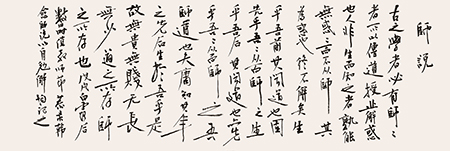 師説
古之學者必有師師
者所以傳道授业解惑
也人非生而知之者孰能
無惑惑而不从師其
為惑也終不解矣生
乎吾前其聞道也固
先乎吾吾从而師之生
乎吾后其聞道也亦先
乎吾吾从而師之吾
師道也夫庸知其年
之先后生於吾乎是
故無貴無賤無長
無少道之所存師
之所存也